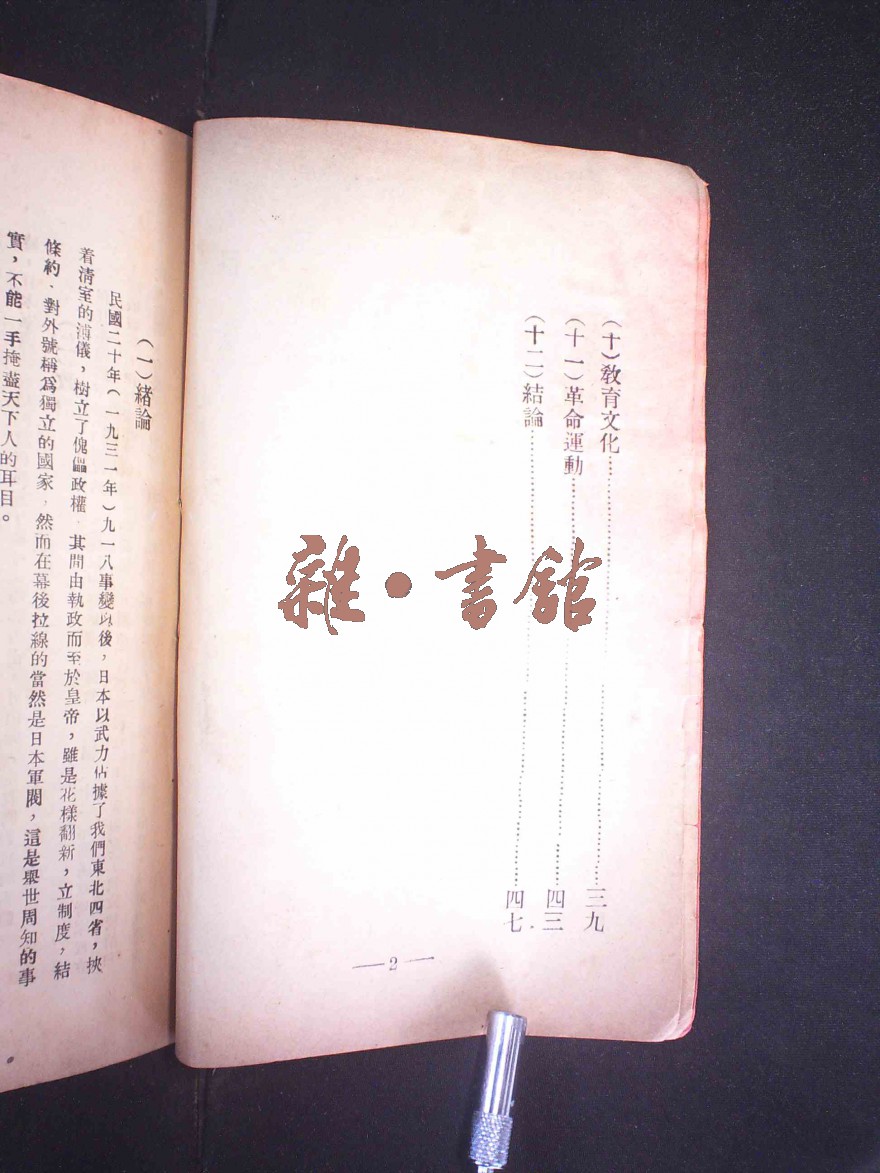 (十)教育文化……三九
(十一)革命運動……四三
(十二)結論……四七
—2—
雜•書館
(一)緒論
民國二十年(一九三一年)九一八事變以後，日本以武力佔據了我們東北四省，挾
着淸室的溥儀，樹立了傀儡政權．其間由執政而至於皇帝，雖是花樣翻新，立制度，結
條約．對外號稱爲獨立的國家．然而在幕後拉線的當然是日本軍閥，這是舉世周知的事
實，不能一手掩盡天下人的耳目。